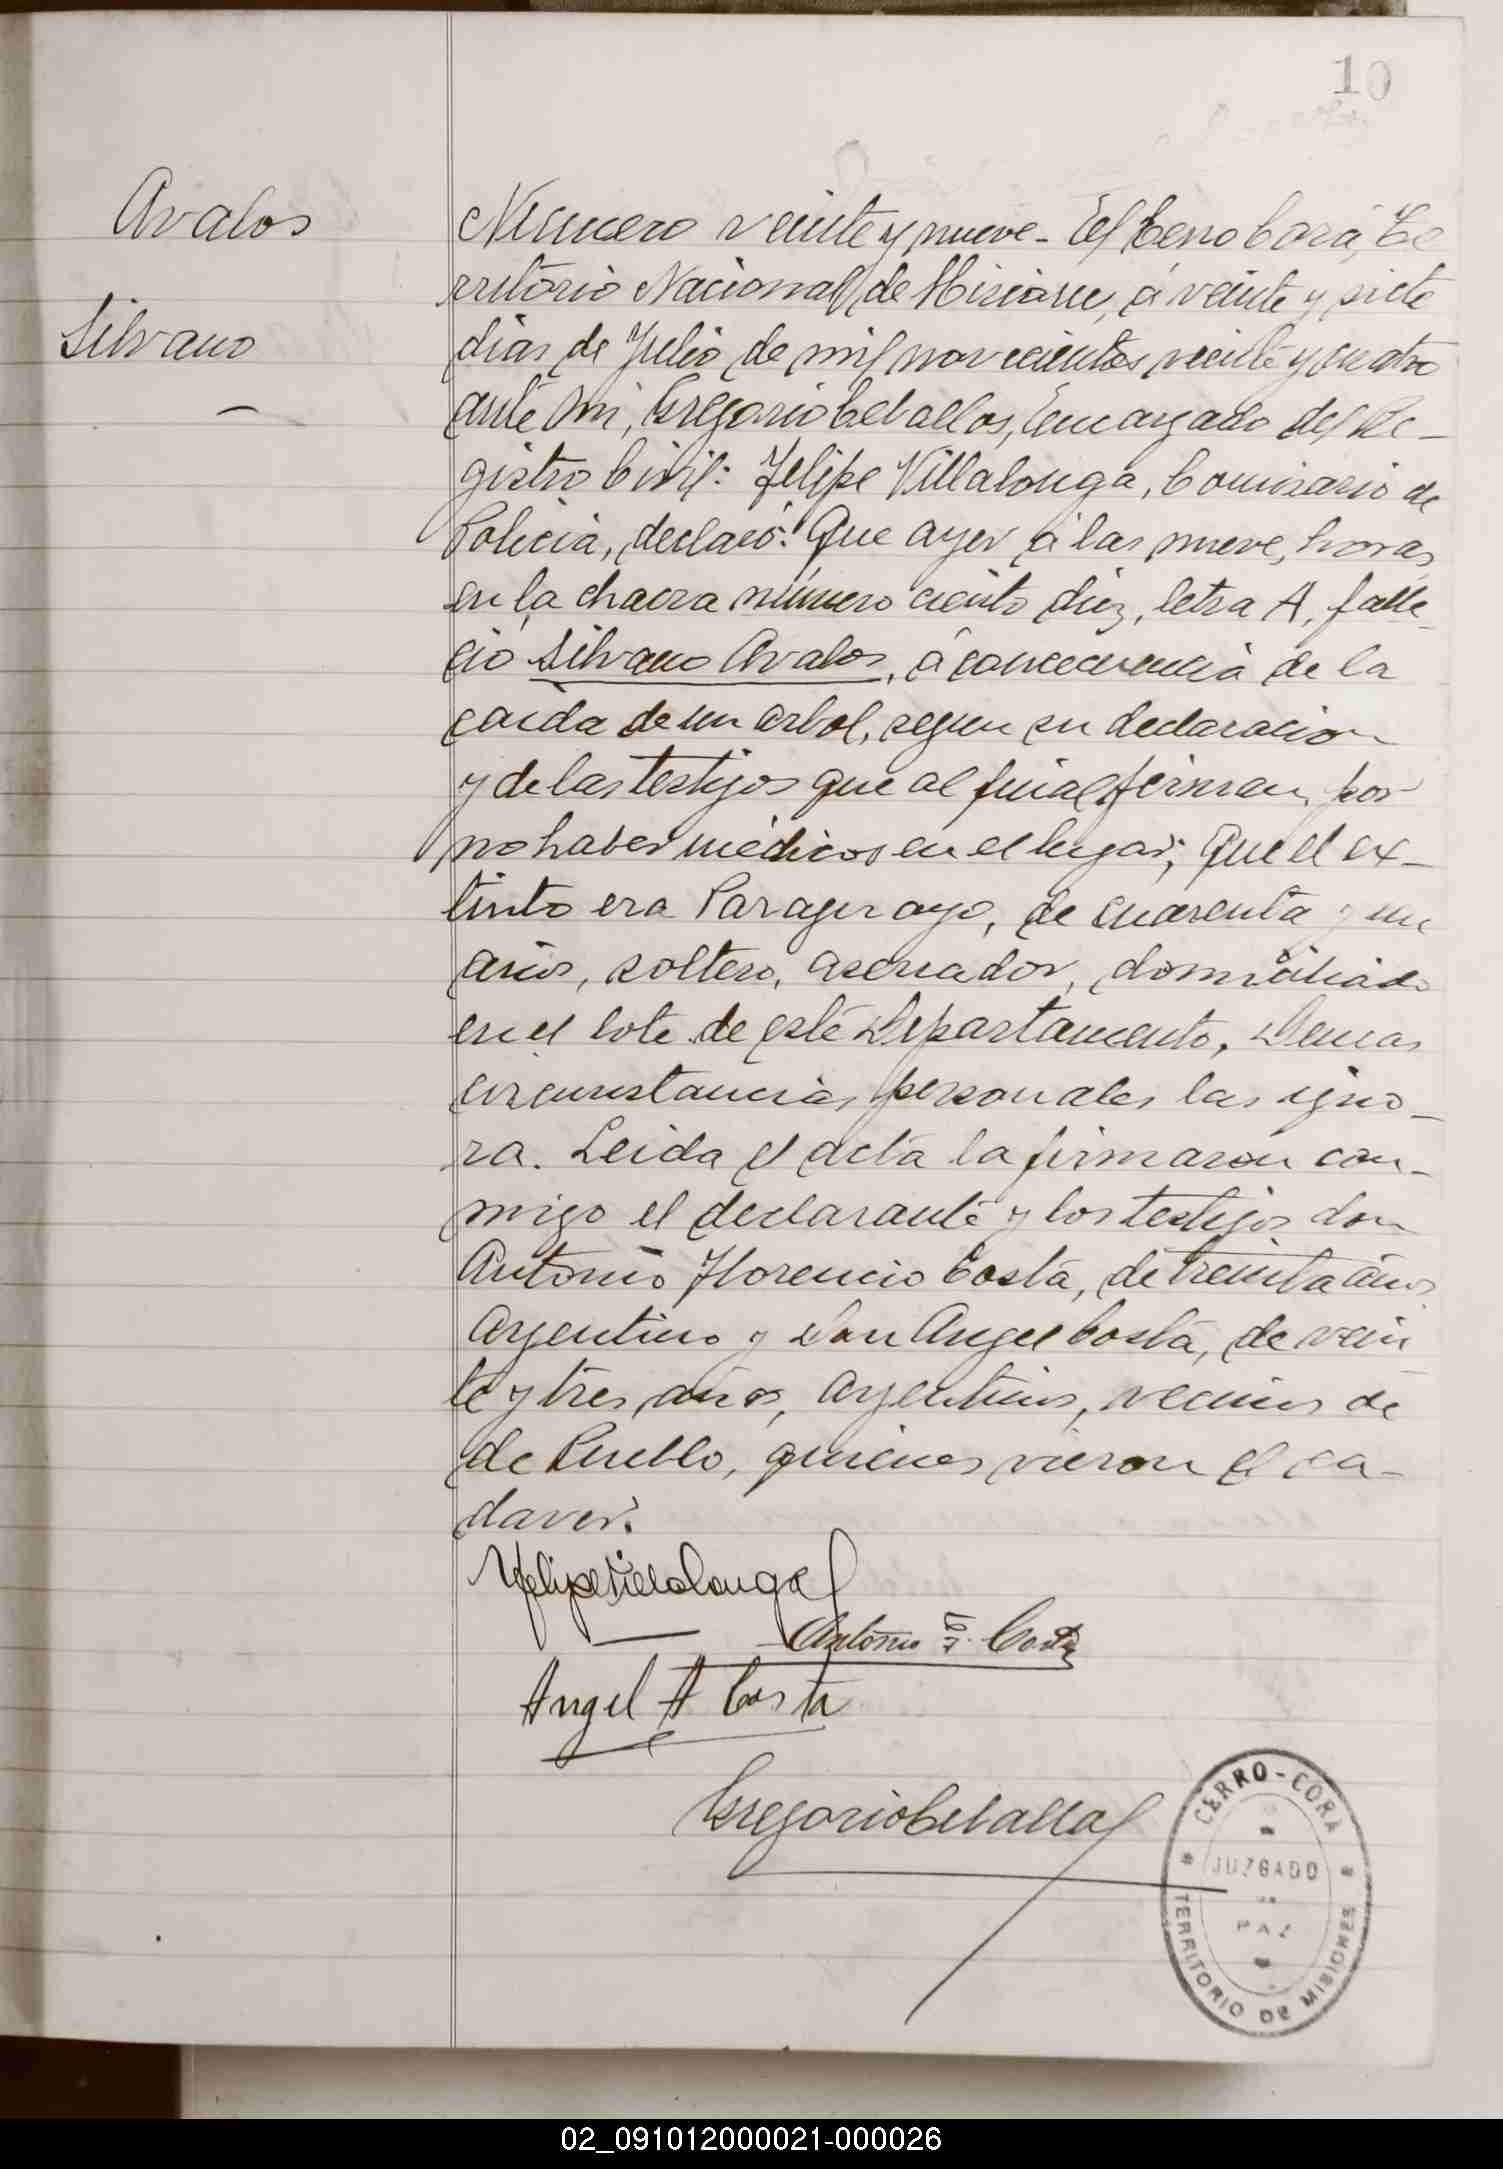 10
Avalos
Silvano
Numero veinte y nueve - En Cerro Corá, Te
rritorio Nacional de Misiones, á veinte y siete
dias de Julio de mil novecientos veinte y cuatro
ante mi, Gregorio Ceballos, Encargado del Re-
gistro Civil: Felipe Villalonga, Comisario de
Policia, declaró: Que ayer á las nueve horas
en la chacra número ciento diez, letra A, falle-
cio Silvano Avalos, á concecuencia de la
caida de un arbol, segun su declaracion
y de las testigos que al final firman, por
no haber médicos en el lugar; Que el ex-
tinto era Paraguayo, de cuarenta y un
años, soltero, aserrador, domiciliado
en el lote de este Departamento, Demas
circunstancias personales las igno-
ra. Leida el acta la firmaron con-
migo el declarante y los testigos don
Antonio Florencio Costa, de treinta años
Argentino y Don Angel Costa, de vein
te y tres años, Argentinos, vecinos de
de Pueblo, quienes vieron el ca-
daver.
Felipe Villalonga
Antonio F. Costa
Angel A Costa
Gregorio Ceballos
CERRO-CORA
JUZGADO
PAZ
TERRITORIO DE MISIONES
02_091012000021-000026